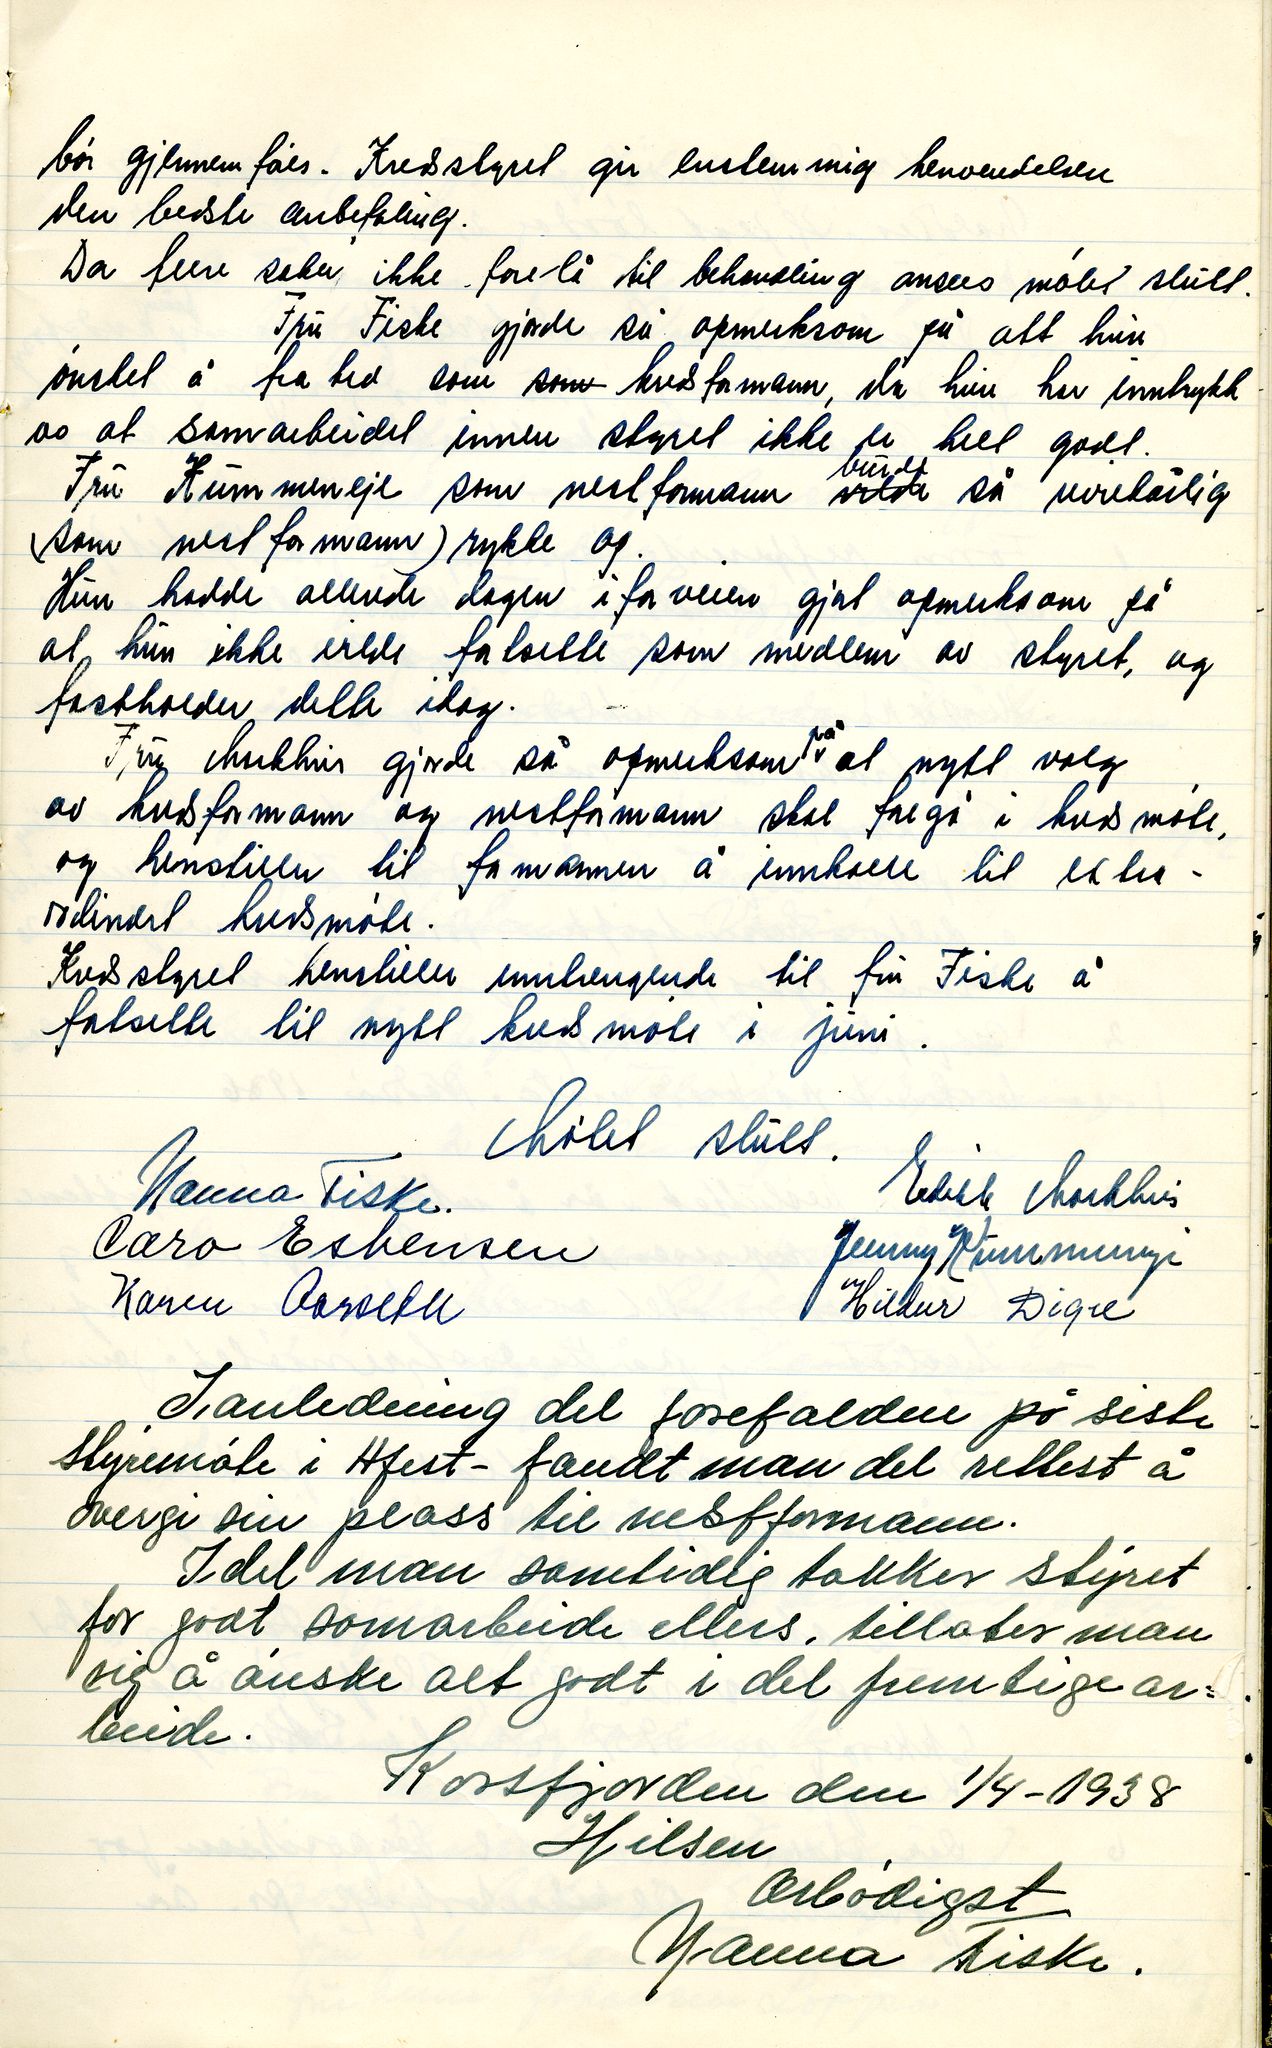 bör gjennemföres. Kredsstyret gir enstemmig henvendelsen
den bedste anbefaling.
Da flere saker ikke forelå til behandling ansees mötet slutt.
Fru Fiske gjorde så opmerksom på att hun
önsket å fratred som som kredsformann, da hun har inntrykk
av at samarbeidet innen styret ikke er helt godt.
Fru Kummeneje som nestformann vilde burde så
(som nestformann) rykke op.
Hun hadde allerede dagen i forveien gjort opmerksom på
at hun ikke vilde fortsette som medlem av styret, og
fastholder dette idag.
Fru Morkhus gjorde så opmerksom på at nytt valg
av kredsformann og nestformann skal foregå i kredsmöte,
og henstiller til formannen å innkalle til extra-
ordinært kredsmöte.
Kredsstyret henstiller inntrengende til fru Fiske å
fortsette til nytt kredsmöte i juni.
Mötet slutt.
Nanna Fiske. Edith Morkhus
Cara Esbensen Jenny Kummeneje
Karen Aarseth Hildur Digre
I anledning det forefaldne på siste
styremöte i H.fest - fandt man det rettest å
overgi sin plass til nestformann.
Idet man samtidig takker styret
for godt samarbeide ellers, tillater man
sig å önske alt godt i det fremtige ar=
beide.
Korsfjorden den 1/4-1938
Hilsen
Ærbödigst
Nanna Fiske.